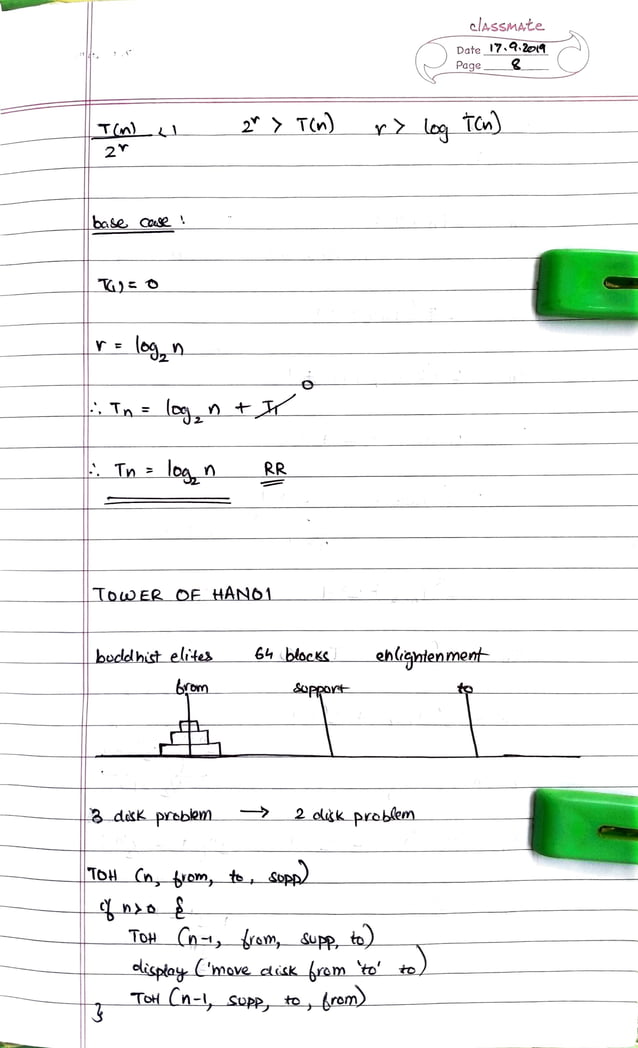 classmate
Date 17.9.2019
Page 8
T(n) / 2^r < 1   2^r > T(n)   r > log T(n)
base case :
T(1) = 0
r = log₂ n
∴ Tn = log₂ n + T1 0
∴ Tn = log₂ n   RR
TOWER OF HANOI
buddhist elites   64 blocks   enlightenment
from   support   to
3 disk problem → 2 disk problem
TOH (n, from, to, supp)
if n>0 {
TOH (n-1, from, supp, to)
display ('move disk from 'to' to)
TOH (n-1, supp, to, from)
}